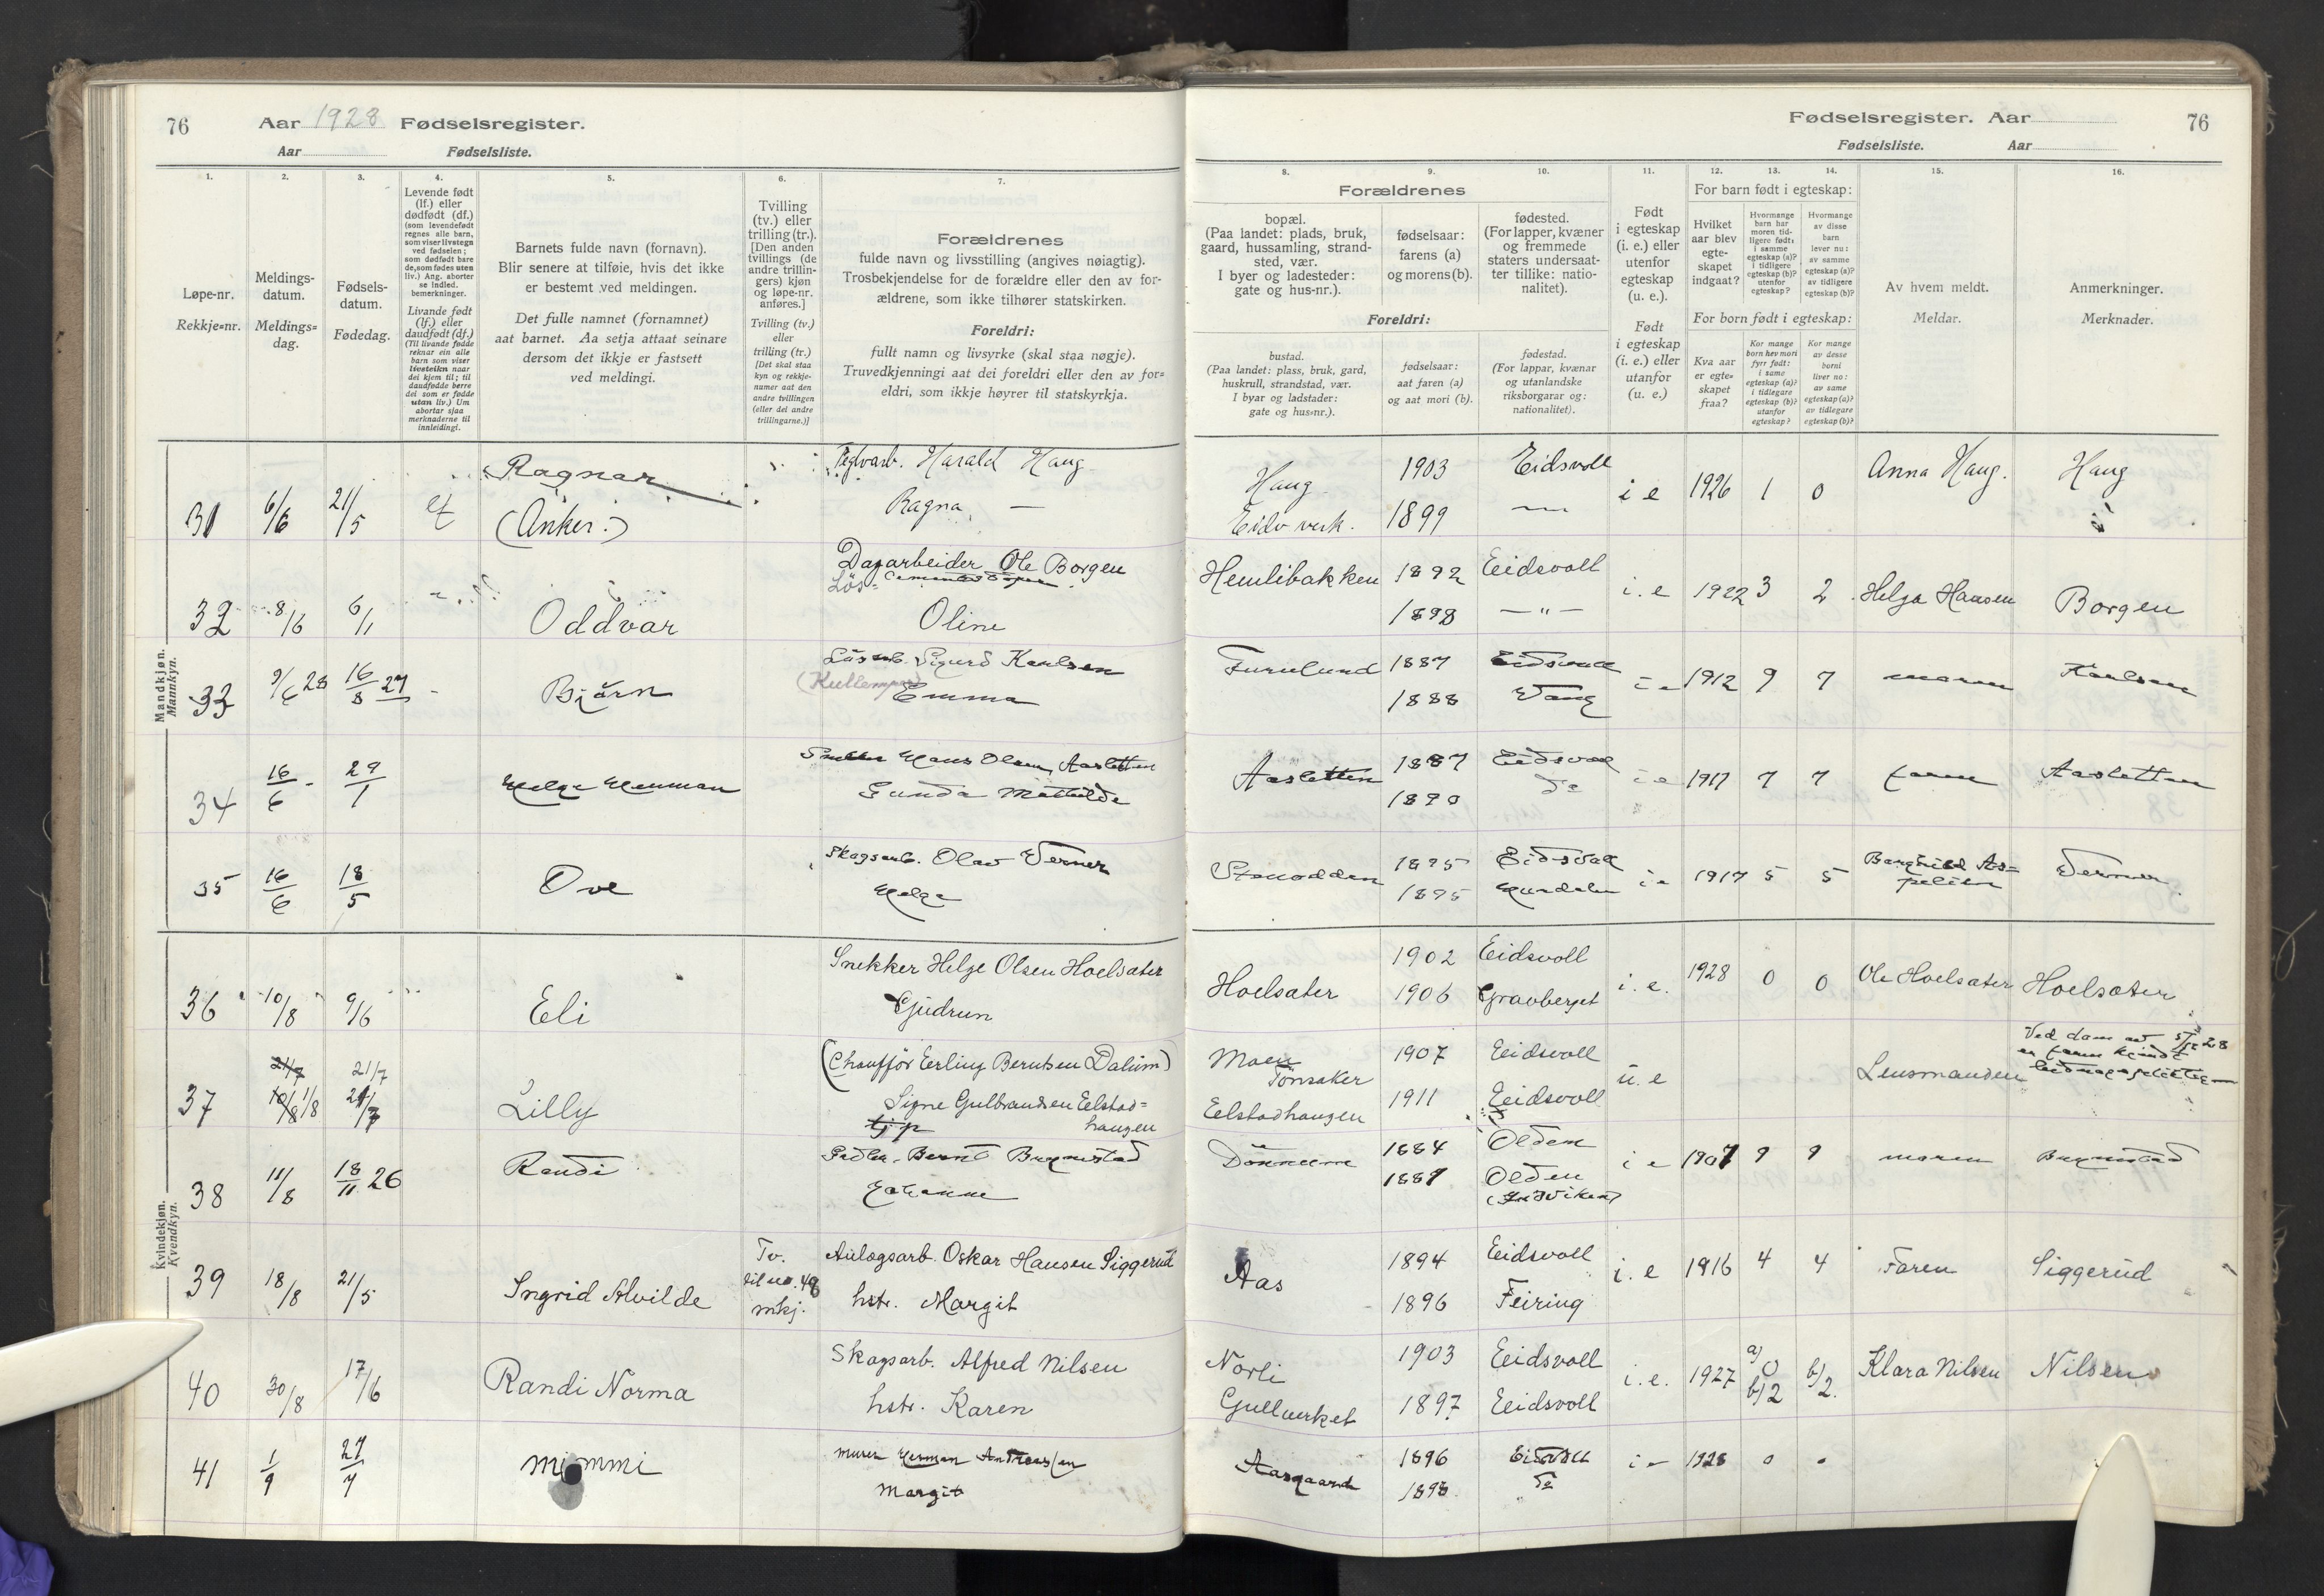 76 Aar 1928 Fødselsregister.
Aar Fødselsliste.
Fødselsregister. Aar 76
Fødselsliste. Aar
1. 2. 3. 4. 5. 6. 7.
Løpe-nr.
Rekkje=nr.
Meldings-
datum.
Meldings=
dag.
Fødsels-
datum.
Fødedag.
Levende født
(lf.) eller
dødfødt (df.)
(som levendefødt
regnes alle barn,
som viser livstegn
ved fødselen;
som dødfødt bare
de, som fødes uten
liv.) Ang. aborter
se indled.
bemerkninger.
Livande født
(lf.) eller
daudfødt (df.)
(Til livande fødde
reknar ein alle
barn som viser
livsteikn naar
dei kjem til; til
daudfødde berre
dei som er fødde
utan liv.) Um
abortar sjaa
merknaderne til
innleidingi.
Barnets fulde navn (fornavn).
Blir senere at tilføie, hvis det ikke
er bestemt ved meldingen.
Det fulle namnet (fornamnet)
aat barnet. Aa setja attaat seinare
dersom det ikkje er fastsett
ved meldingi.
Tvilling
(tv.) eller
trilling (tr.).
[Den anden
tvillings (de
andre trillin-
gers) kjøn
og løpe-nr.
anføres.]
Tvilling (tv.)
eller
trilling (tr.)
[Det skal staa
kyn og rekkje-
numer aat den
andre tvillingen
(eller dei andre
trillingarne.)]
Forældrenes
fulde navn og livsstilling (angives nøiagtig).
Trosbekjendelse for de forældre eller den av for-
ældrene, som ikke tilhører statskirken.
Foreldri:
fullt namn og livsyrke (skal staa nøgje).
Truvedkjenningi aat dei foreldri eller den av for=
eldri, som ikkje høyrer til statskyrkja.
8. 9. 10. 11. 12. 13. 14. 15. 16.
Forældrenes
bopæl.
(Paa landet: plads, bruk,
gaard, hussamling, strand-
sted, vær.
I byer og ladesteder:
gate og hus-nr.).
fødselsaar:
farens (a)
og morens (b).
fødested.
(For lapper, kvæner
og fremmede
staters undersaat-
ter tillike: natio-
nalitet).
Foreldri:
bustad.
(Paa landet: plass, bruk, gard,
huskrull, strandstad, vær.
I byar og ladstader:
gate og hus=nr.).
fødselsaar:
aat faren (a)
og aat mori (b).
fødestad.
(For lappar, kvænar
og utanlandske
riksborgarar og:
nationalitet).
Født
i egteskap
(i. e.) eller
utenfor
egteskap
(u. e.).
Født
i egteskap
(i. e.) eller
utanfor
(u. e.)
For barn født i egteskap:
Hvilket
aar blev
egte-
skapet
indgaat?
Hvormange
barn har
moren tid-
ligere født:
i samme
egteskap (a)?
i tidligere
egteskap (b)?
utenfor
egteskap?
Hvormange
av disse
barn
lever nu:
av samme
egteskap (a)?
av tidligere
egteskap (b)?
For born født i egteskap:
Kva aar
er egte=
skapet
fraa?
Kor mange
born hev mori
fyrr født:
i same
egteskap (a)?
i tidlegare
egteskap (b)?
utanfor
egteskap?
Kor mange
av desse
borni
liver no:
av same
egteskap (a)?
av tidlegare
egteskap (b)?
Av hvem meldt.
Meldar.
Anmerkninger.
Merknader.
Mandkjøn.
Mannkyn.
31 6/6 21/5 Ragnar Harald Haug
(Anker.) Ragna —
Haug 1903 Eidsvoll i e 1926 1 0 Anna Haug. Haug
Eidsv verk. 1899
32 8/6 6/1 Oddvar Dagarbeider Ole Borgen
Oline
Hemlibakken 1892 Eidsvoll i. e 1922 3 2 Helga Hansen Borgen
1898 — " —
33 9/6 28 16/8 27 Bjørn Sigurd Karlsen
Emma
Furulund 1887 Eidsvoll i e 1912 9 7 moren Karlsen
1888 Vang
34 16/6 29/1 Helge Herman Hans Olsen Aasletten
Gunda Mathilde
Aasletten 1887 Eidsvoll i e 1917 7 7 faren Aasletten
1890 do
35 16/6 18/5 Ove Skogsarb. Olav Verner
Helga
Stenodden 1895 Eidsvoll i e 1917 5 5 Verner
1895 Hurdalen
Kvindekjøn.
Kvendkyn.
36 10/8 9/6 Eli Snekker Helge Olsen Hoelsæter
Gudrun
Hoelsæter 1902 Eidsvoll i. e. 1928 0 0 Ole Hoelsæter Hoelsæter
1906 Gravberget
37 1/8 21/7 Lilly (Chauffør Erling Berntsen Dalum)
Signe Gulbrandsen Eelstad=
haugen
Moen 1907 Eidsvoll u. e Lensmanden Ved dom av 5/12 28
Tønsaker er faren kjendt
Eelstadhaugen 1911 Eidsvoll
38 11/8 18/11 26 Randi
Johanne
1884 Olden i e 1907 9 9 moren
1887 Olden
39 18/8 21/5 Ingrid Alvilde Tv.
til no. 48
mkj.
Anlægsarb. Oskar Hansen Siggerud
hstr. Margit
Aas 1894 Eidsvoll i. e 1916 4 4 Faren Siggerud
1896 Feiring
40 30/8 17/6 Randi Norma Skogsarb. Alfred Nilsen
hstr. Karen
Norli 1903 Eidsvoll i. e. 1927 a) 0 b) 2 b) 2. Klara Nilsen Nilsen
Gullverket 1897 Eidsvoll
41 1/9 27/7 Mimmi Murer Herman Andreassen
Margit
Aasgaard 1896 Eidsvoll i e 1928 0 0
1898 do